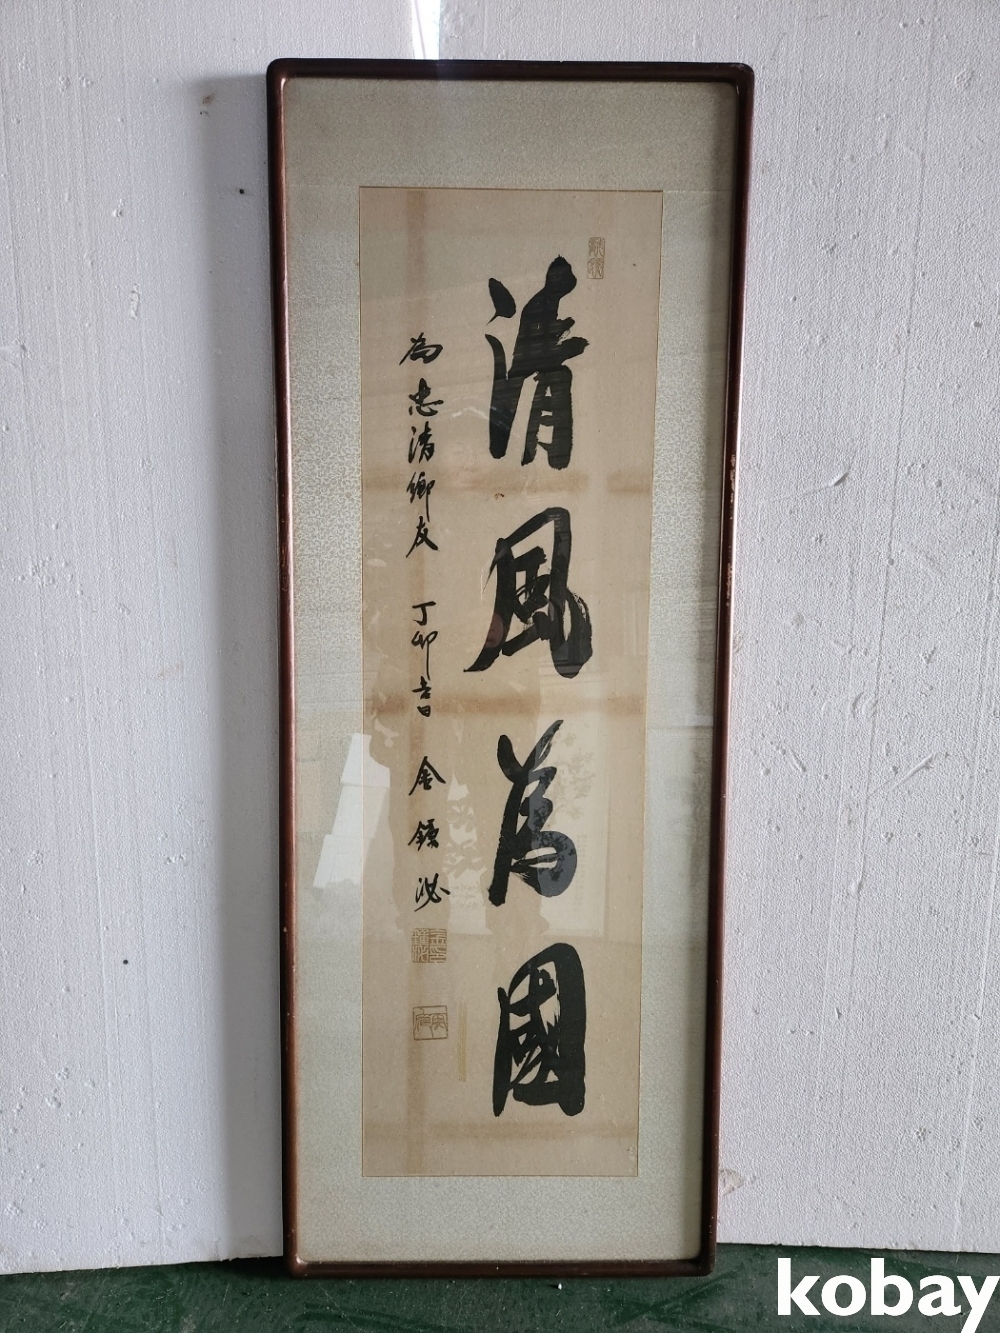 清風為國
為忠清鄉友 丁卯春 金鍾泌
kobay